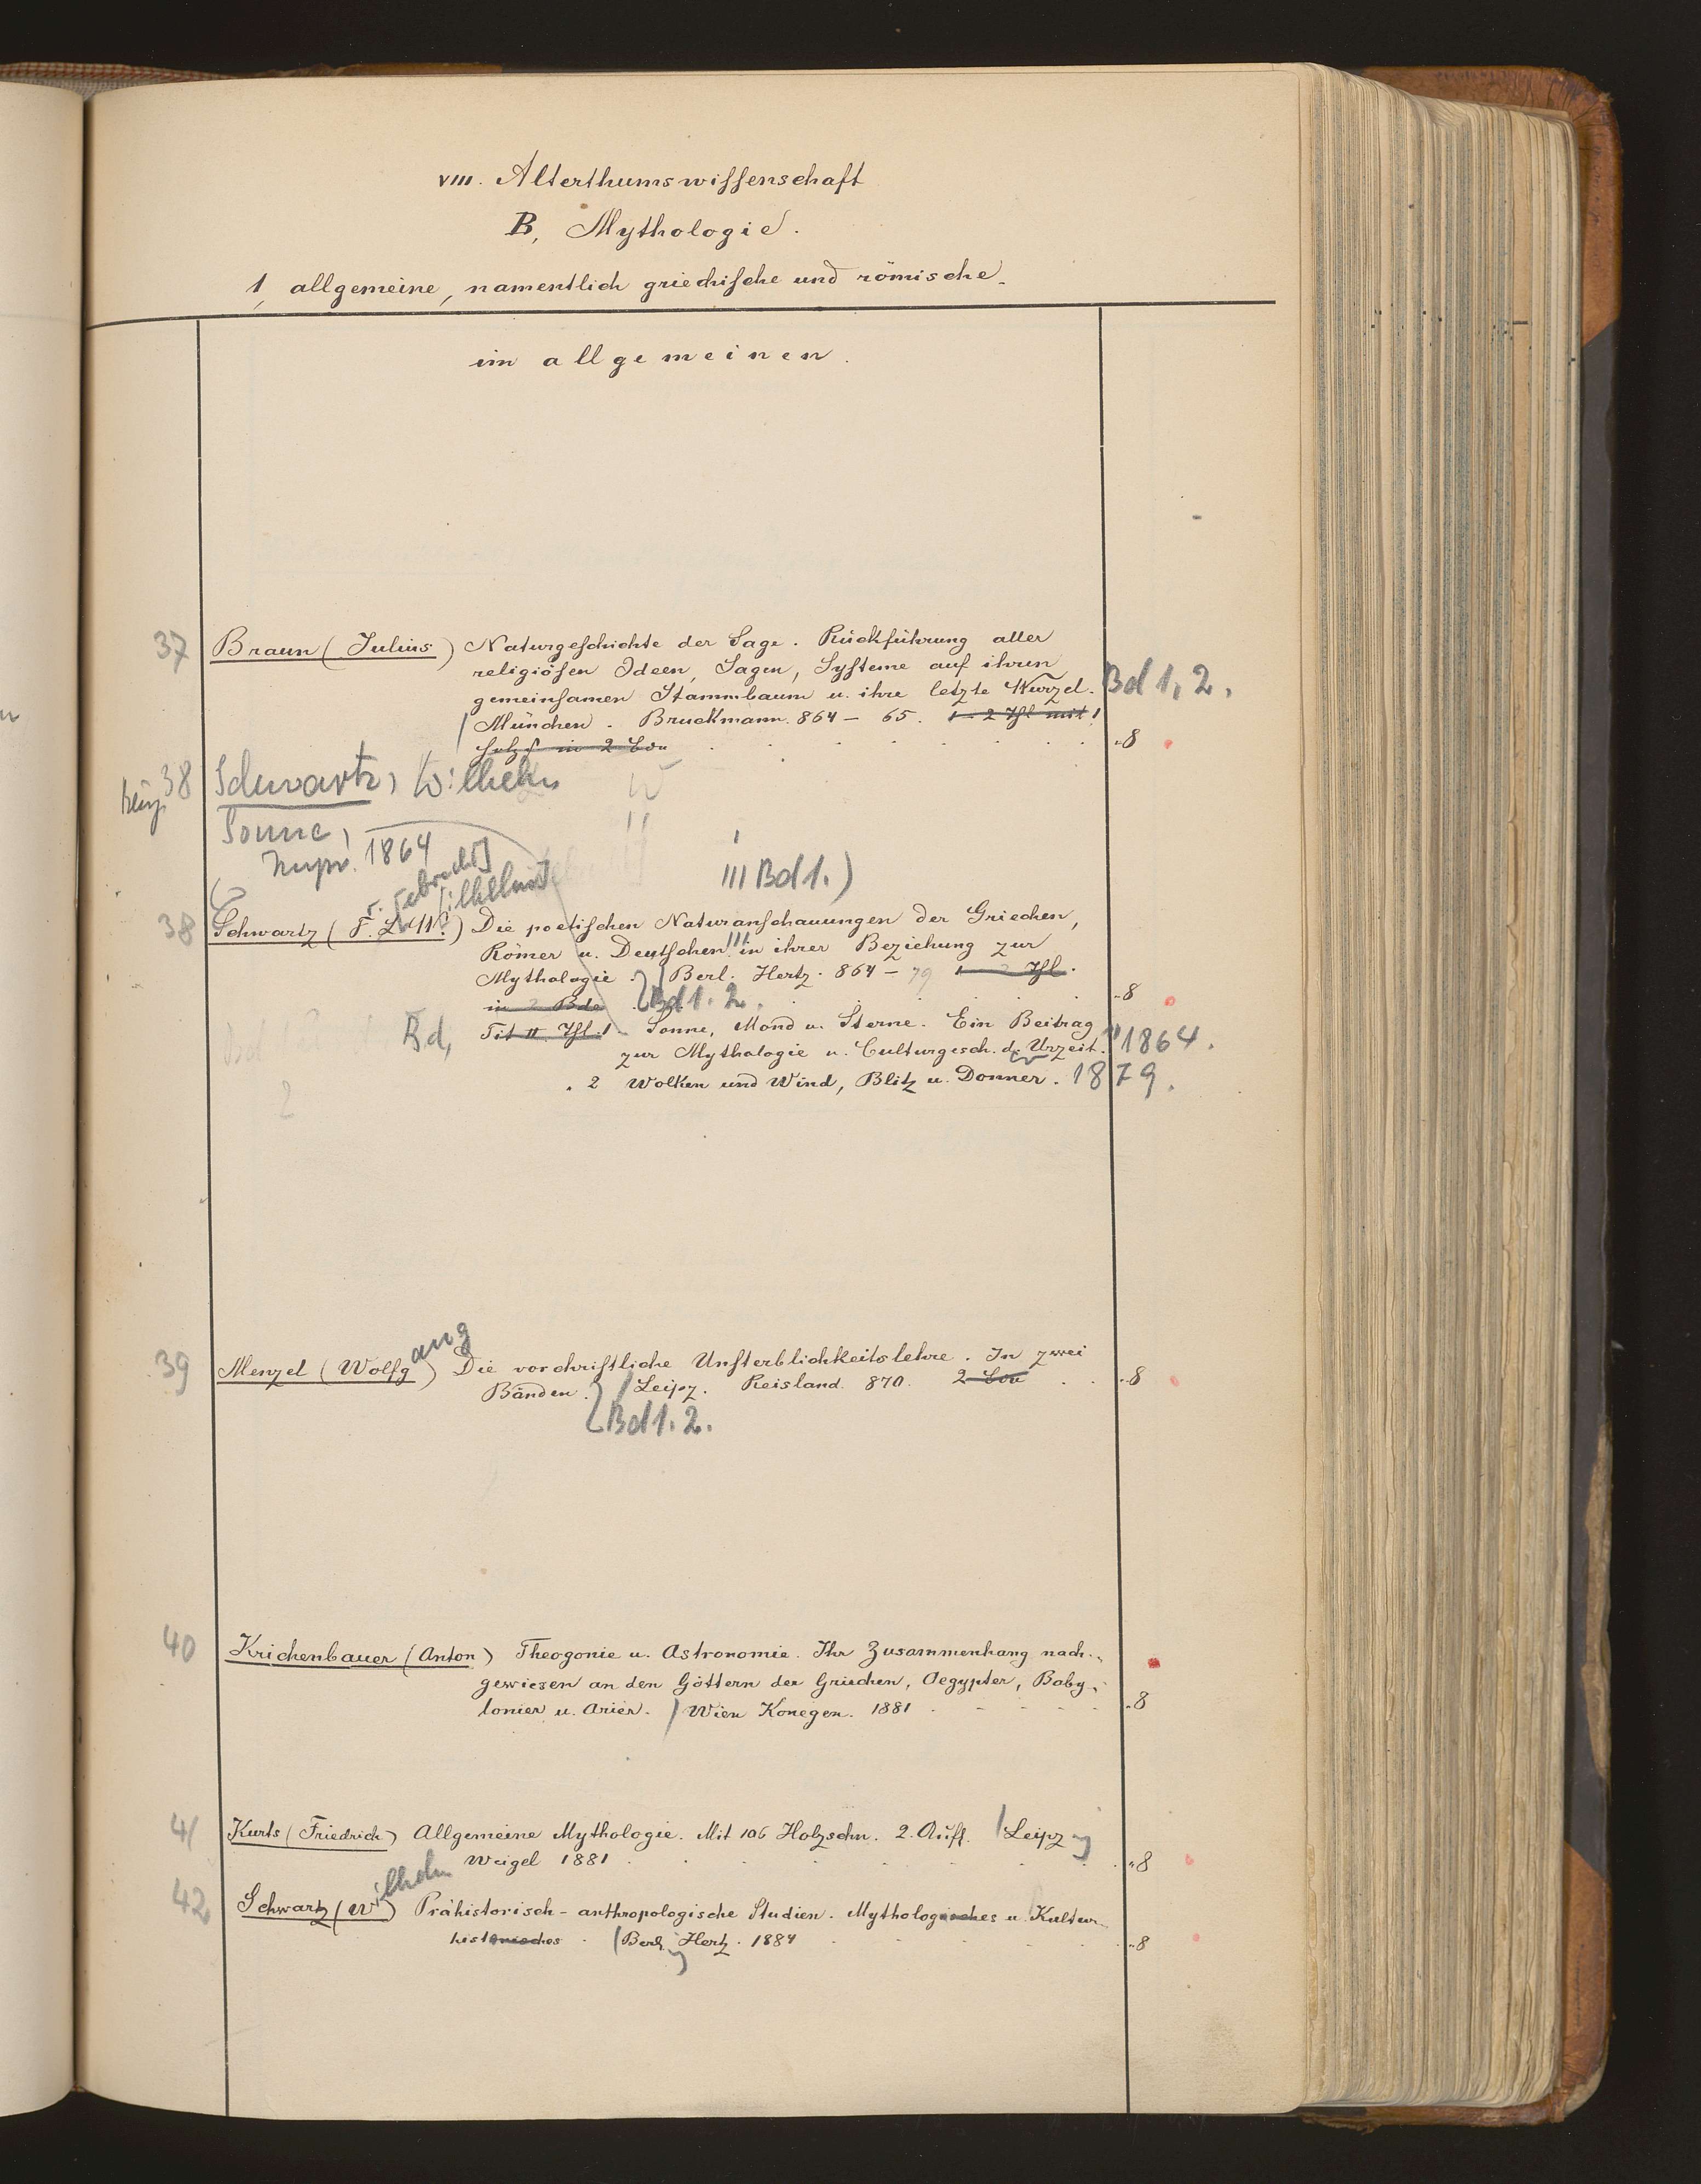 VIII. Alterthumswissenschaft
B, Mythologie.
1, allgemeine, namentlich griechische und römische.
im allgemeinen.
37 Braun (Julius) Naturgeschichte der Sage. Rückführung aller
religiösen Ideen, Sagen, Systeme auf ihren
gemeinsamen Stammbaum u. ihre letzte Wurzel. Bd 1, 2.
München. Bruckmann. 864-65. 1-2 Thl mit
in 2 8
38 Schwartz, Wilhelm
Sonne,
1864
III Bd 1.)
38 Schwartz (F. L. W.) Die poetischen Naturanschauungen der Griechen,
Römer u. Deutschen in ihrer Beziehung zur
Mythologie. Berl. Hertz. 864-79 1-2 Thl.
in 2 Bde Bd 1. 2. 8
Bd, Tit II Thl. 1 Sonne, Mond u. Sterne. Ein Beitrag
zur Mythologie u. Culturgesch. d. Urzeit. 1864.
2 Wolken und Wind, Blitz u. Donner. 1879.
2
39 Menzel (Wolfgang) Die vorchristliche Unsterblichkeitslehre. In zwei
Bänden. Leipz. Reisland. 870. 2 8
Bd 1. 2.
40 Krichenbauer (Anton) Theogonie u. Astronomie. Ihr Zusammenhang nach-
gewiesen an den Göttern der Griechen, Aegypter, Baby-
lonier u. Arier. Wien Konegen. 1881 8
41 Kurts (Friedrich) Allgemeine Mythologie. Mit 106 Holzschn. 2. Aufl. Leipz
Weigel 1881 8
42 Schwartz (Wilhelm) Prähistorisch-anthropologische Studien. Mythologisches u. Kultur-
historisches. Berl. Hertz. 1884 8